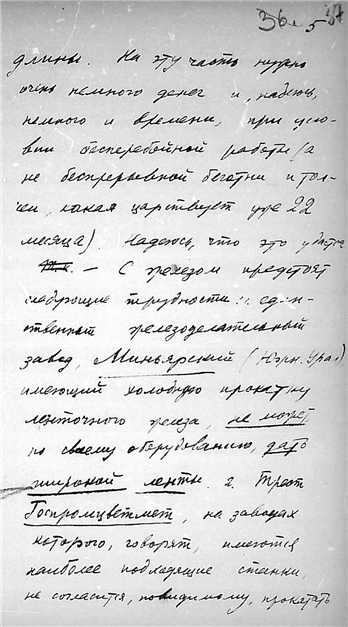 36. 5 37
длины. На эту часть нужно
очень немного денег и, надеюсь,
немного и времени, при усло-
вии бесперебойной работы (а
не беспрерывной беготни и тол-
чеи, какая царствует уже 22
месяца). Надеюсь, что это удастся
— С железом предстоят
следующие трудности: един-
ственный железоделательный
завод, Миньярский (Южн. Урал)
имеющий холодную прокатку
ленточного железа, не может
по своему оборудованию, дать
широкой ленты. 2. Трест
Госпромцветмет, на заводах
которого, говорят, имеются
наиболее подходящие станки,
не согласится, повидимому, прокатать